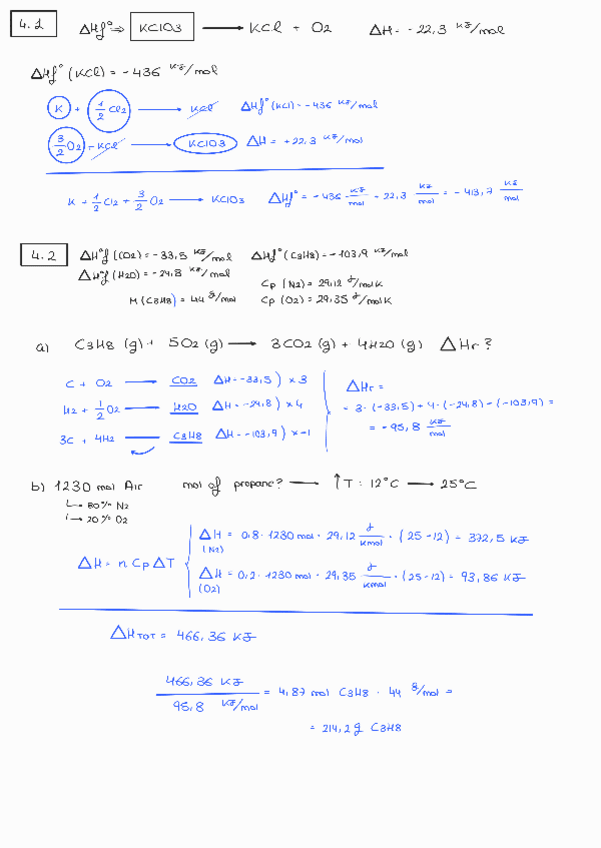 4.1 ΔHf° ⇒ KClO3 → KCl + O2 ΔH = -22,3 KJ/mol
ΔHf° (KCl) = -436 KJ/mol
K + 1/2 Cl2 → KCl ΔHf° (KCl) = -436 KJ/mol
3/2 O2 + KCl → KClO3 ΔH = +22,3 KJ/mol
K + 1/2 Cl2 + 3/2 O2 → KClO3 ΔHf° = -436 KJ/mol + 22,3 KJ/mol = -413,7 KJ/mol
4.2 ΔH°f (CO2) = -33,5 KJ/mol ΔHf° (C3H8) = -103,9 KJ/mol
ΔH°f (H2O) = -24,8 KJ/mol Cp (N2) = 29,12 J/mol K
M (C3H8) = 44 g/mol Cp (O2) = 29,35 J/mol K
a) C3H8 (g) + 5O2 (g) → 3CO2 (g) + 4H2O (g) ΔHr ?
C + O2 → CO2 ΔH = -33,5) × 3 ΔHr =
H2 + 1/2 O2 → H2O ΔH = -24,8) × 4 = 3 · (-33,5) + 4 · (-24,8) - (-103,9) =
3C + 4H2 C3H8 ΔH = -103,9) × -1 = -95,8 KJ/mol
b) 1230 mol Air mol of propane? → ↑T : 12°C → 25°C
↳ 80% N2
↳ 20% O2
ΔH = n Cp ΔT
ΔH (N2) = 0,8 · 1230 mol · 29,12 J/Kmol · (25-12) = 372,5 KJ
ΔH (O2) = 0,2 · 1230 mol · 29,35 J/Kmol · (25-12) = 93,86 KJ
ΔHTOT = 466,36 KJ
466,36 KJ / 95,8 KJ/mol = 4,87 mol C3H8 · 44 g/mol =
= 214,2 g C3H8